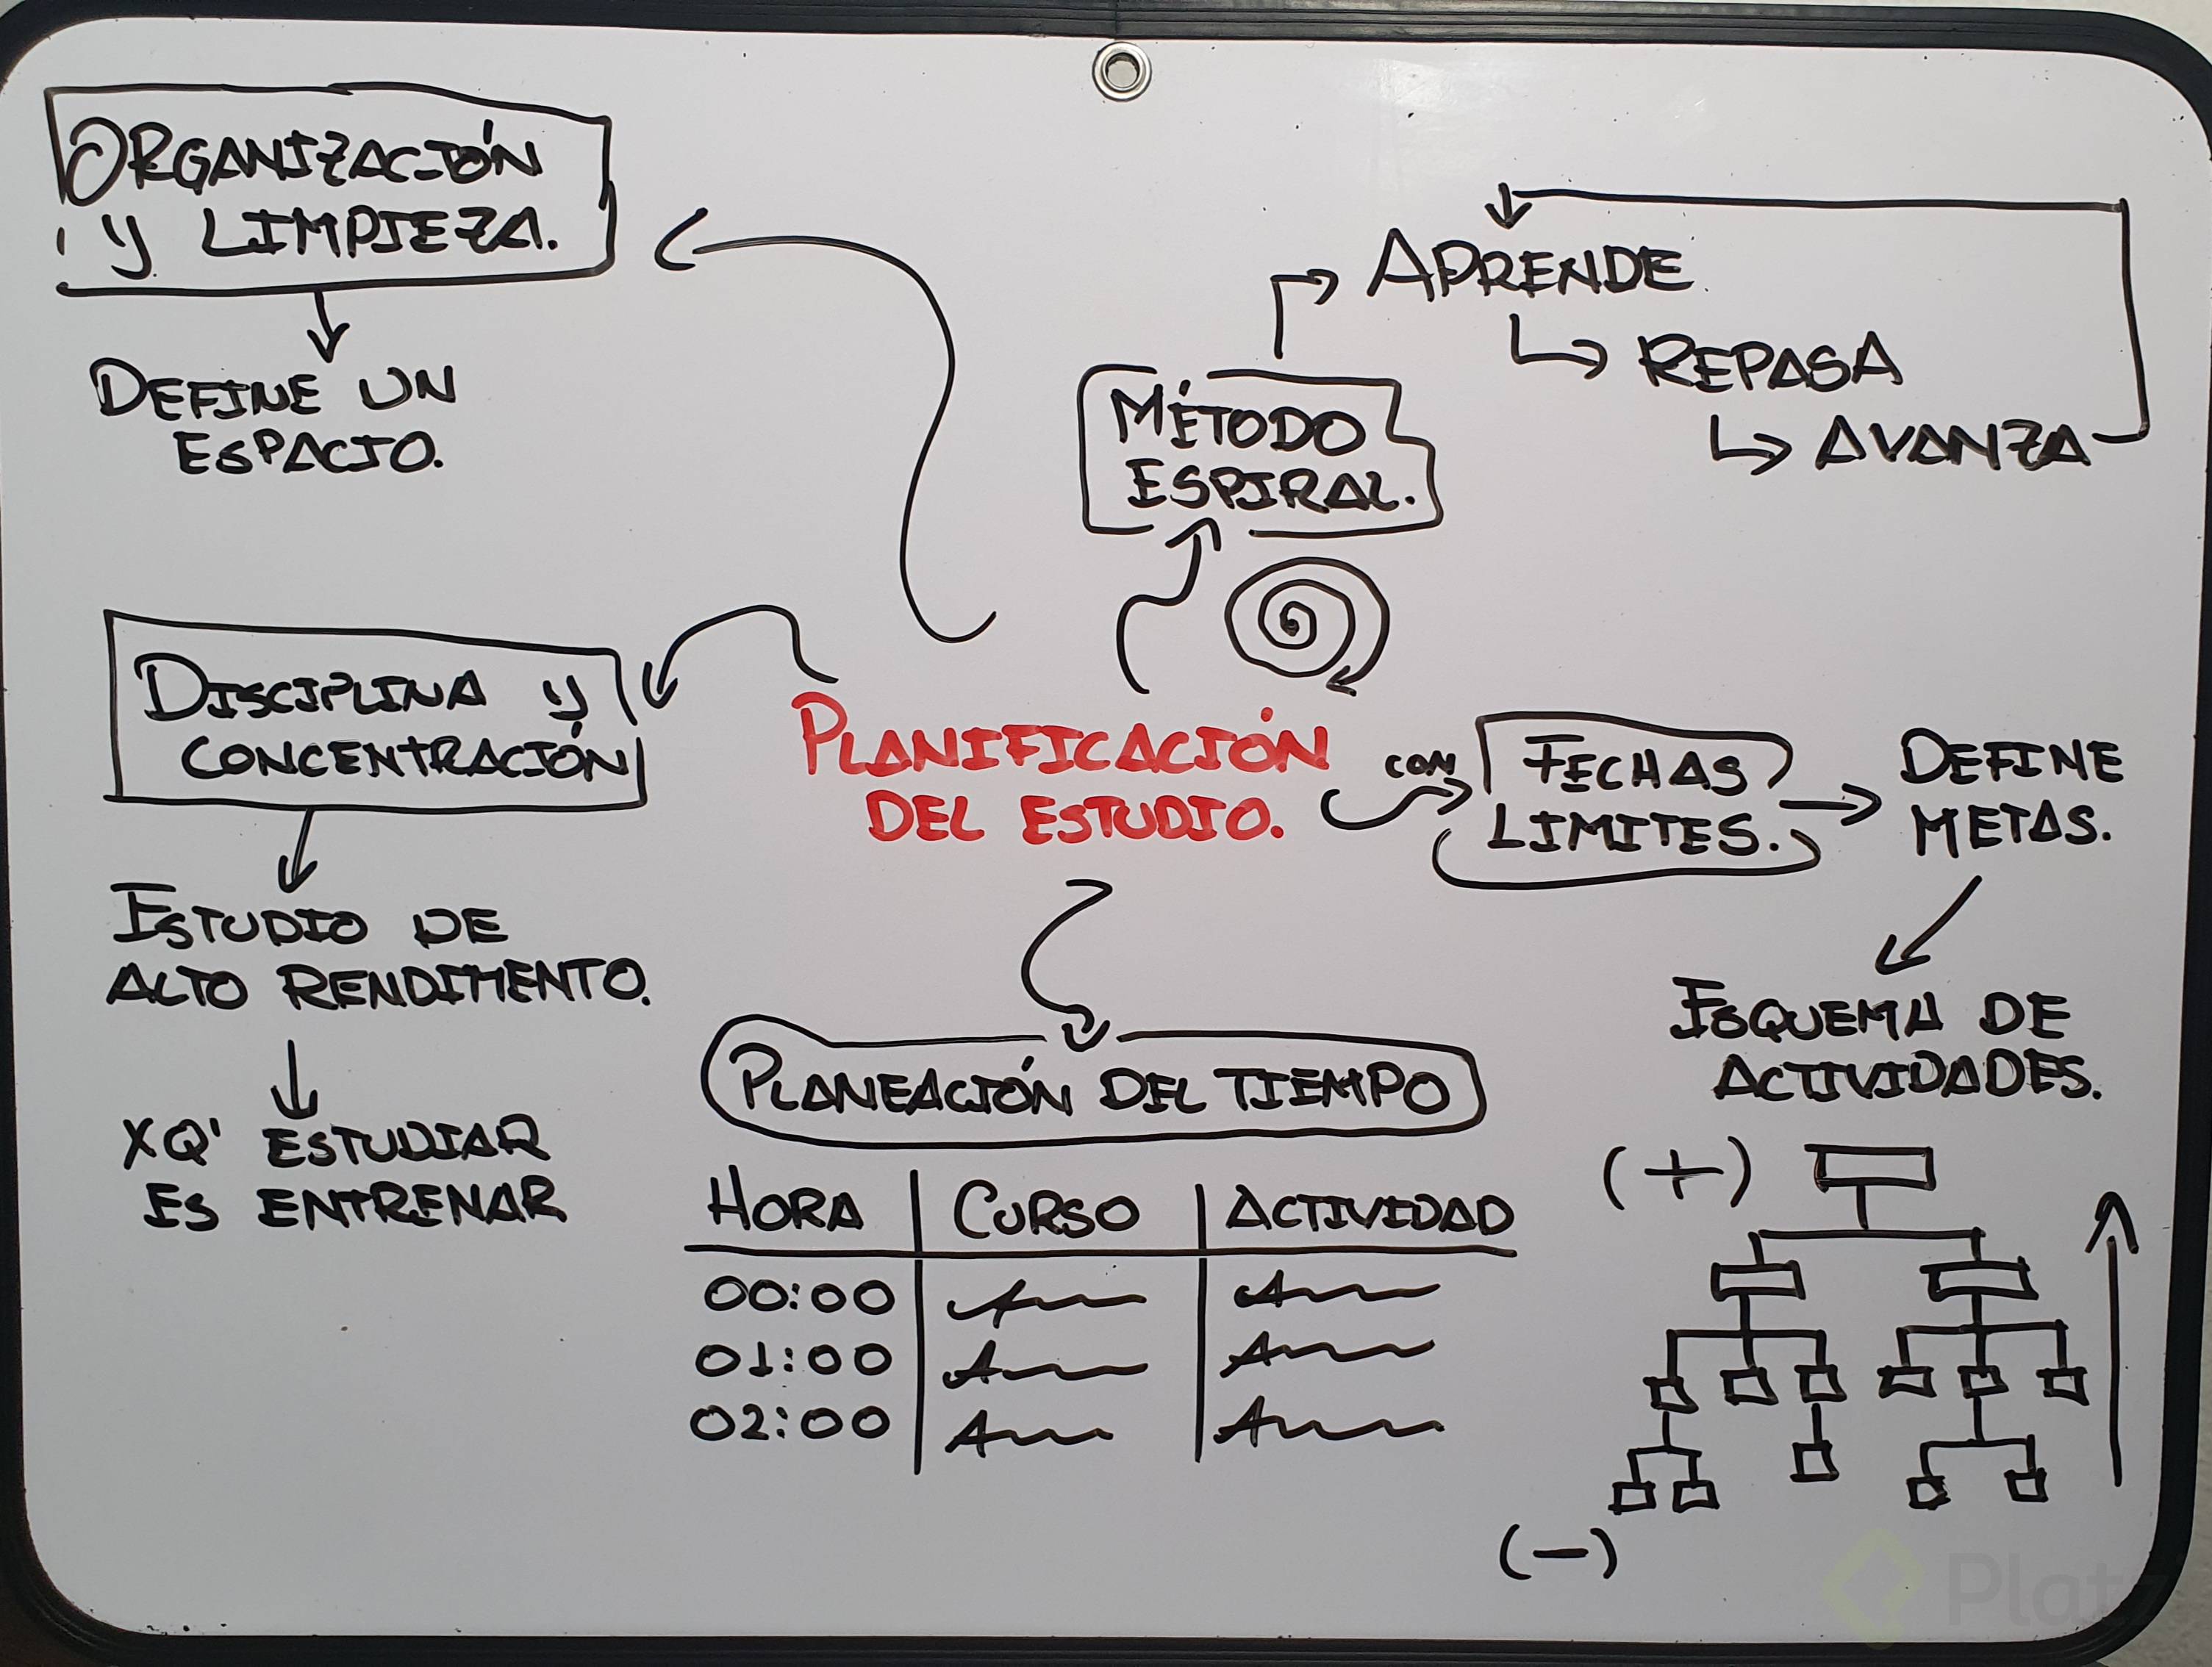 ORGANIZACIÓN
Y LIMPIEZA.
DEFINE UN
ESPACIO.
MÉTODO
ESPIRAL.
APRENDE
REPASA
AVANZA
DISCIPLINA Y
CONCENTRACIÓN
ESTUDIO DE
ALTO RENDIMIENTO.
XQ' ESTUDIAR
ES ENTRENAR
PLANIFICACIÓN
DEL ESTUDIO.
CON
FECHAS
LIMITES.
DEFINE
METAS.
ESQUEMA DE
ACTIVIDADES.
(+)
(-)
PLANEACIÓN DEL TIEMPO
HORA CURSO ACTIVIDAD
00:00
01:00
02:00
Platzi